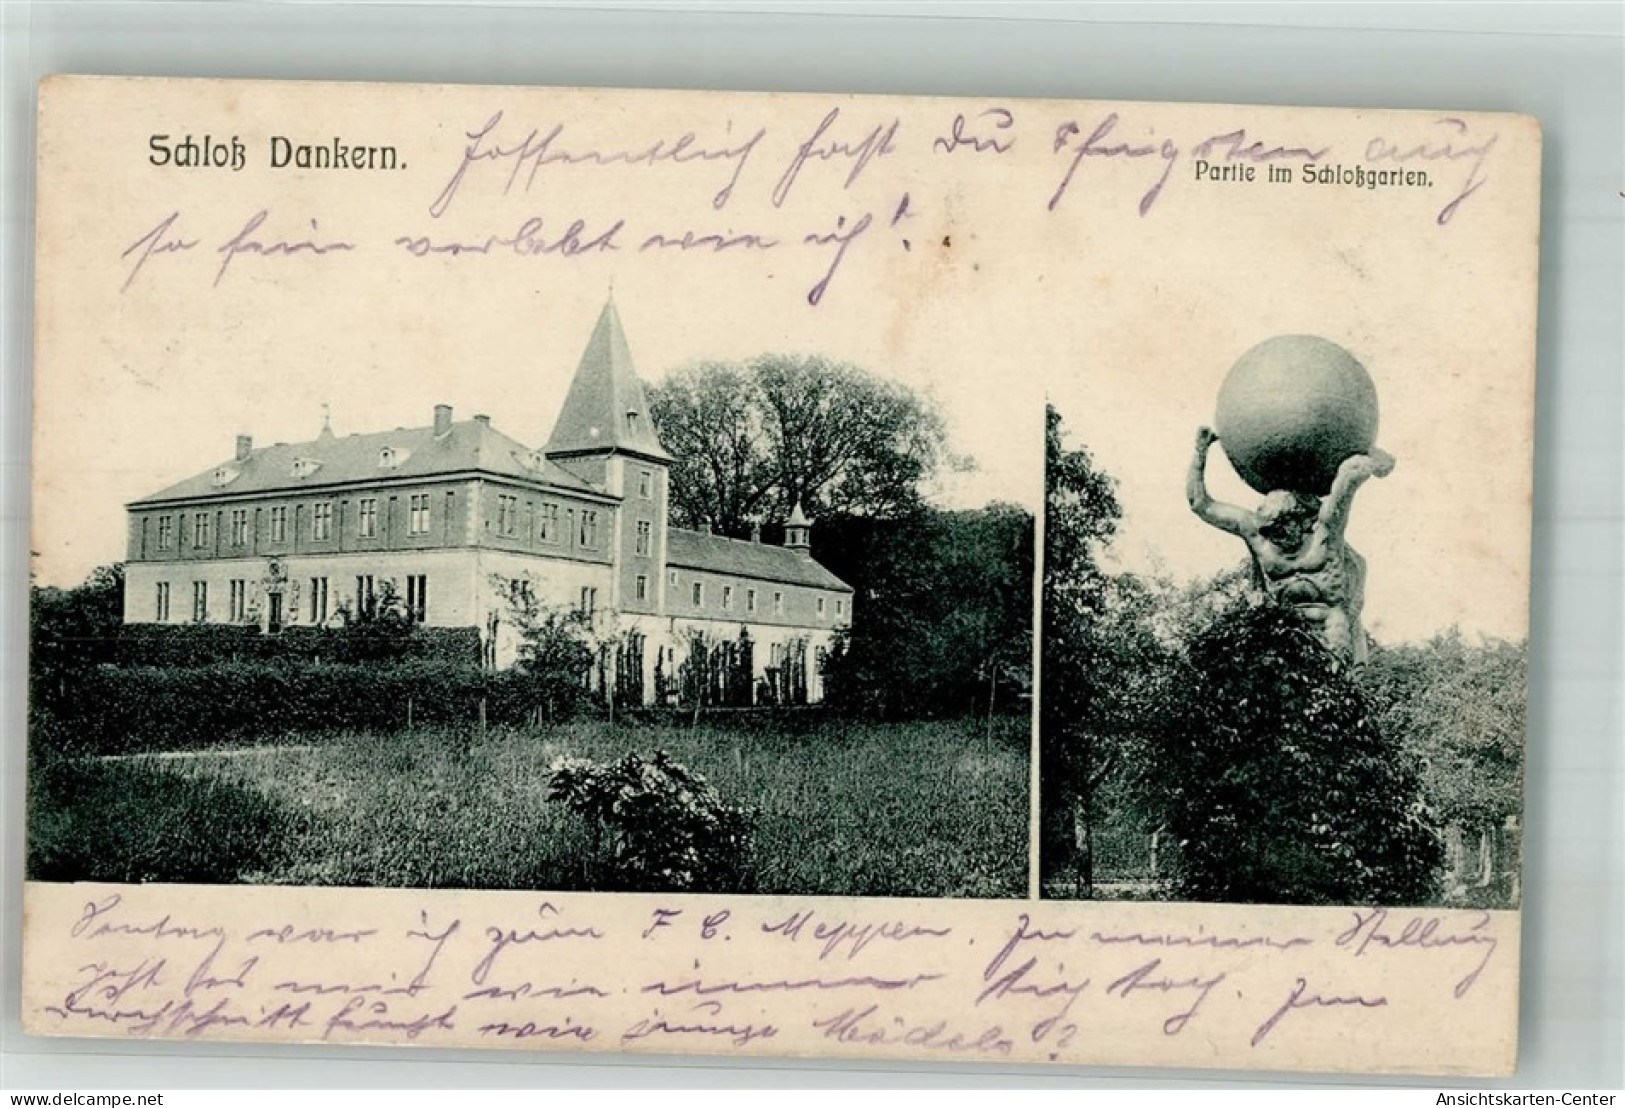 Schloß Dankern.
Hoffentlich hast Du Pfingsten auch
Partie im Schloßgarten.
so fein verlebt wie ich!
Sonntag war ich zum F. C. Meppen. In meiner Stellung
geht es mir wie immer
Im
Durchschnitt wie junge Mädels?
delcampe.net
Ansichtskarten-Center